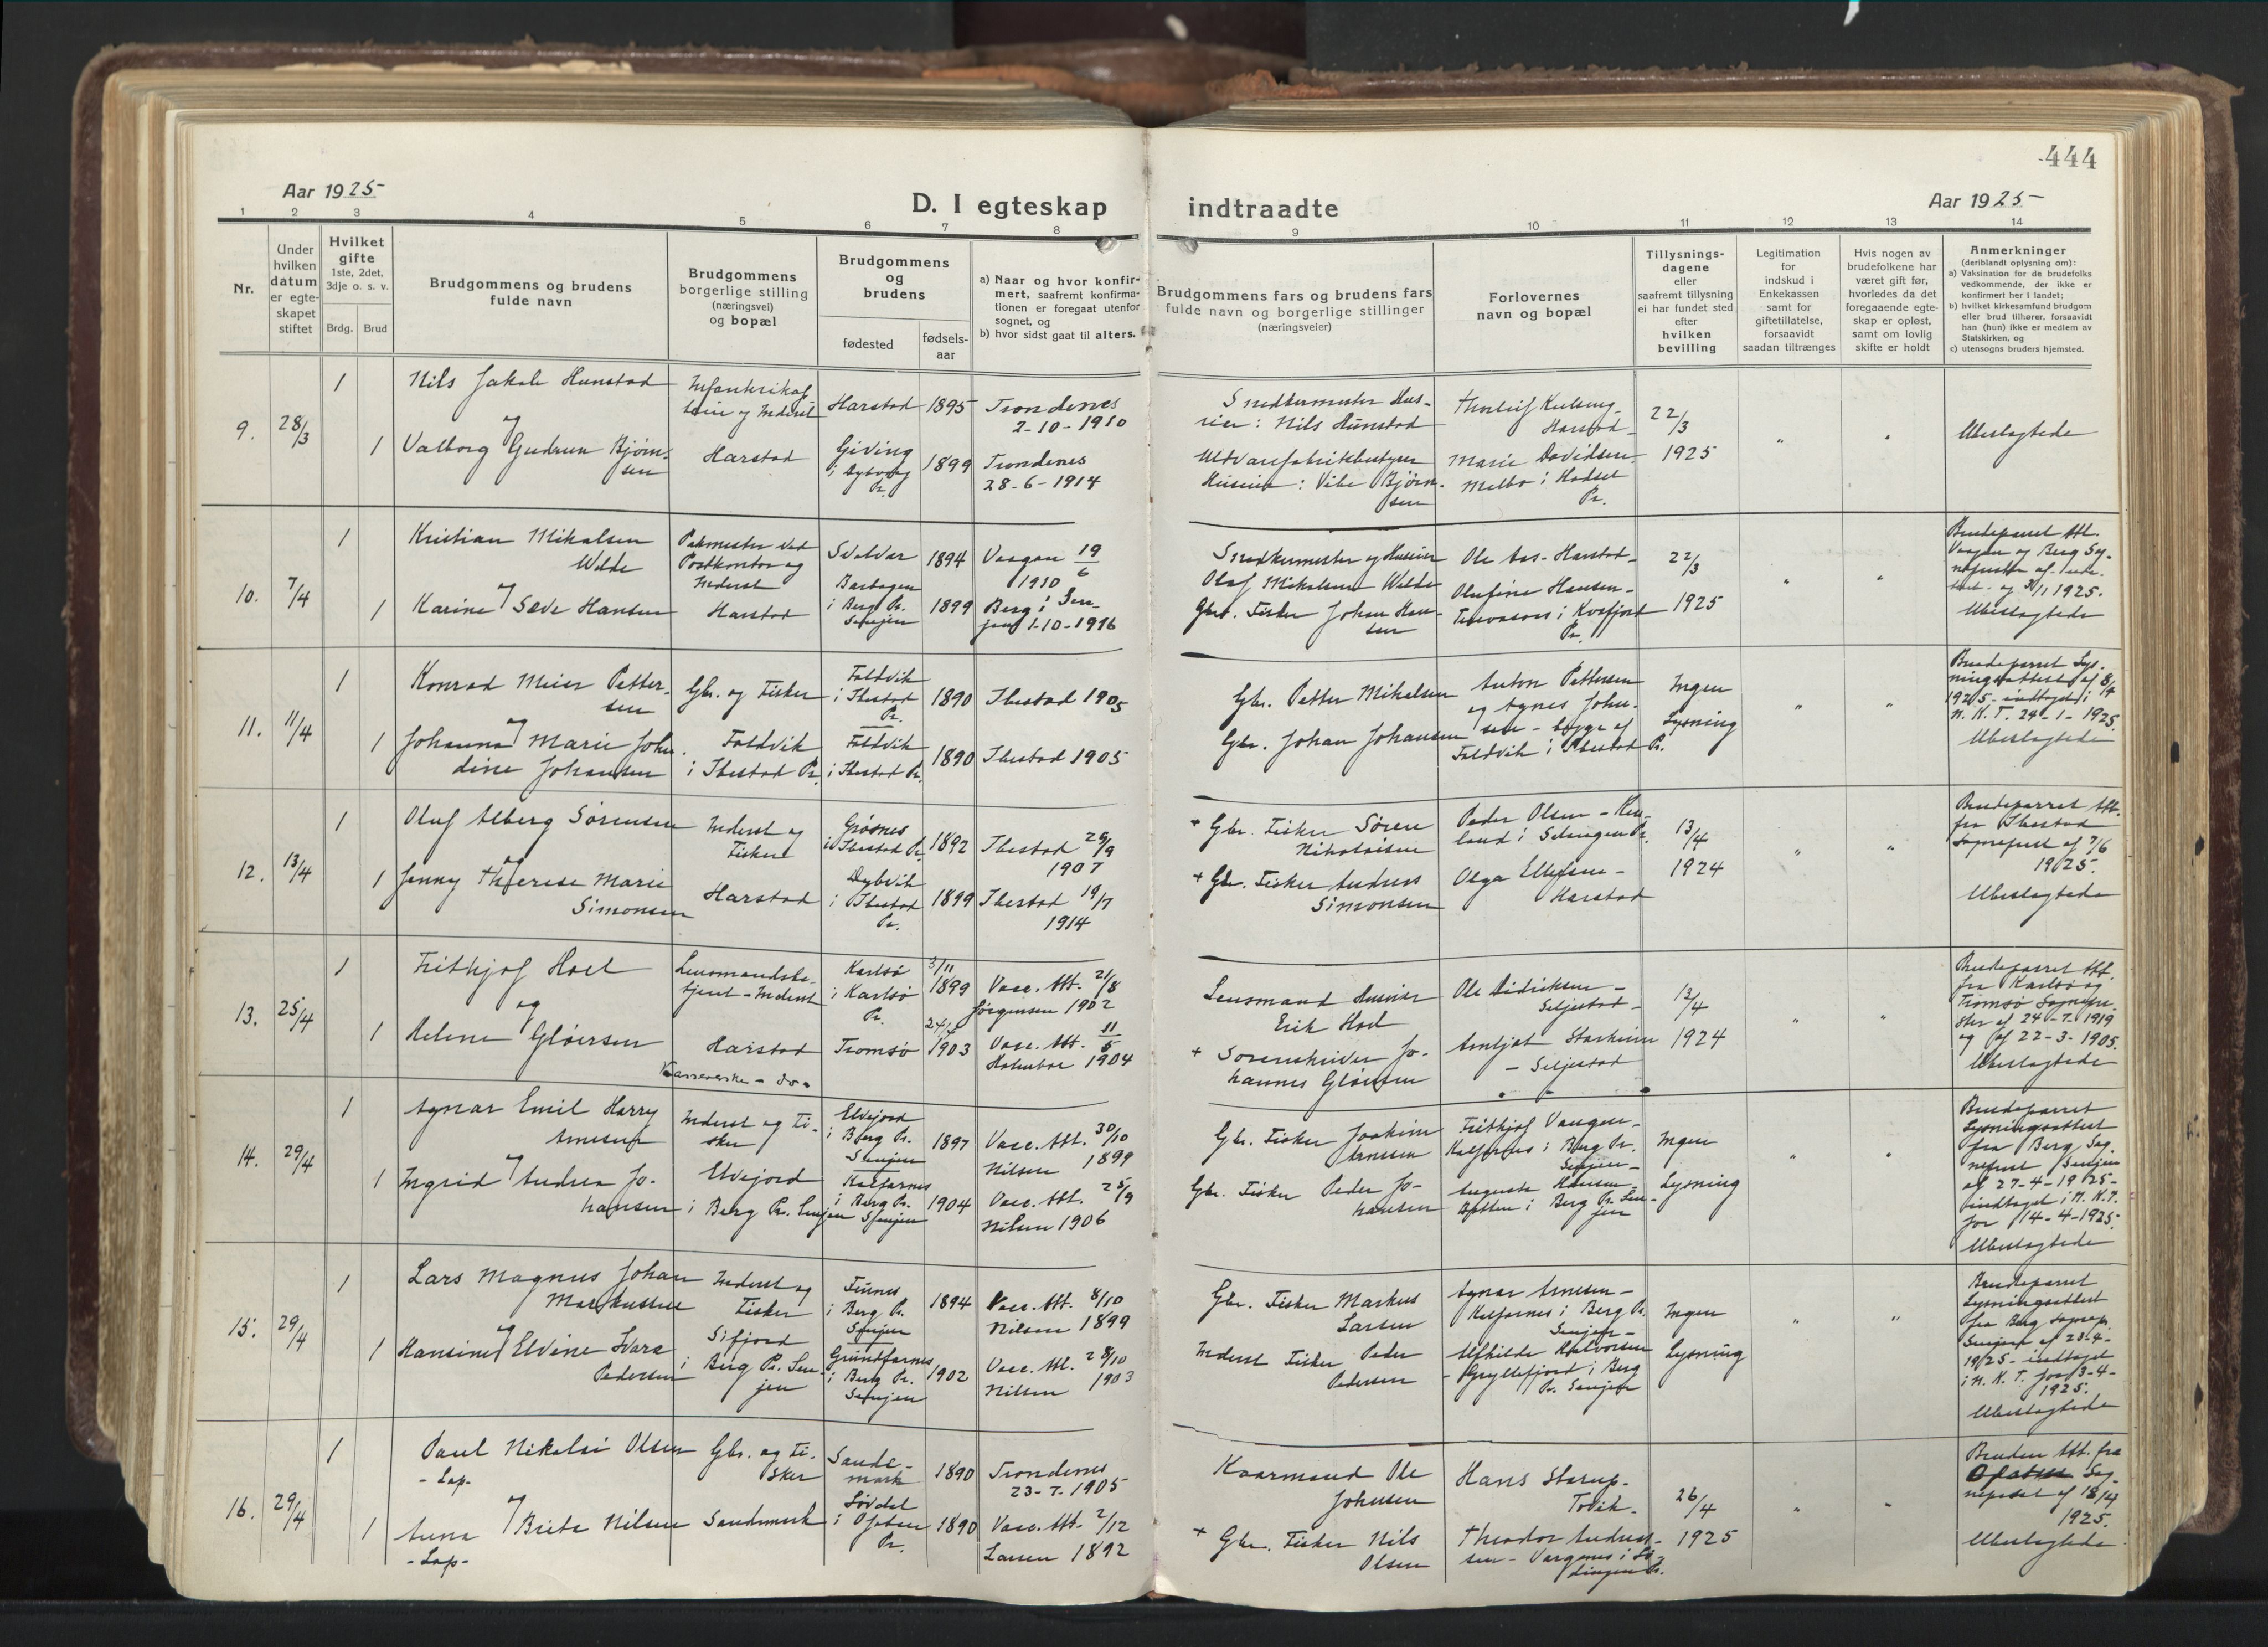 444
Aar 1925-
D. I egteskap indtraadte
Aar 1925-
1 2 3 4 5 6 7 8 9 10 11 12 13 14
Nr.
Under
hvilken
datum
er egte-
skapet
stiftet
Hvilket
gifte
1ste, 2det,
3dje o. s. v.
Brdg. Brud
Brudgommens og brudens
fulde navn
Brudgommens
borgerlige stilling
(næringsvei)
og bopæl
Brudgommens
og
brudens
fødested
fødsels-
aar
a) Naar og hvor konfir-
mert, saafremt konfirma-
tionen er foregaat utenfor
sognet, og
b) hvor sidst gaat til alters.
Brudgommens fars og brudens fars
fulde navn og borgerlige stillinger
(næringsveier)
Forlovernes
navn og bopæl
Tillysnings-
dagene
eller
saafremt tillysning
ei har fundet sted
efter
hvilken
bevilling
Legitimation
for
indskud i
Enkekassen
samt for
giftetillatelse,
forsaavidt
saadan tiltrænges
Hvis nogen av
brudefolkene har
været gift før,
hvorledes da det
foregaaende egte-
skap er opløst,
samt om lovlig
skifte er holdt
Anmerkninger
(deriblandt oplysning om):
a) Vaksination for de brudefolks
vedkommende, der ikke er
konfirmert her i landet;
b) hvilket kirkesamfund brudgom
eller brud tilhører, forsaavidt
han (hun) ikke er medlem av
Statskirken, og
c) utensogns bruders hjemsted.
9.
28/3
1
1
Nils Jakob Hunstad
og
Valborg Gudrun Bjørn-
sen
Harstad
Harstad 1895
Giving
1899
Trondenes
2-10-1910
Trondenes
28-6-1914
Snedkermester Hus-
eier: Nils Hunstad
Uldvarefabrikbestyrer
Huseier: Vibe Bjørn-
sen
Harstad
Marie Davidsen-
Melbo i Hadsel
Pr.
22/3
1925
Ubeslegtede
10.
7/4
1
1
Kristian Mikalsen
Welde
og
Karine Hansen
Pakmester ved
Postkontor og
Inderst
Harstad
Svolvær 1894
i Berg Pr.
Senjen
1899
Vaagan 19/6
1910
Berg i Sen-
jen 1-10-1916
Snedkermester og Huseier
Olaf Mikalsen Welde
Gbr. Fisker Johan Han-
sen
Ole Aas - Harstad -
Olufine Hansen -
i Kvæfjord
Pr.
22/3
1925
Brudeparret Att.
Vaagan og Berg Sog-
1925.
Ubeslegtede
11.
11/4
1
1
Konrad Meier Petter-
sen
og
Johanna Marie John-
dine Johansen
Gbr. og Fisker
Foldvik
i Ibestad Pr.
Foldvik
i Ibestad
Pr.
1890
Foldvik
i Ibestad Pr.
1890
Ibestad 1905
Ibestad 1905
Gbr. Petter Mikalsen
Gbr. Johan Johansen
Anton Pettersen
og Agnes John-
sen - begge af
Foldvik i Ibestad Pr.
Ingen
Lysning
Brudeparret Lys-
ningsattest af 8/4
1925 - indtaget i
N. K. T. 24-1-1925.
Ubeslegtede
12.
13/4
1
1
Oluf Alberg Sørensen
og
Jenny Therese Marie
Simonsen
Inderst og
Fisker
Harstad
Grøsnes
i Ibestad Pr.
1892
Dybvik
i Ibestad
Pr.
1899
Ibestad 29/9
1907
Ibestad 19/7
1914
+ Gbr. Fisker Søren
Nikolaisen
+ Gbr. Fisker Andreas
Simonsen
Peder Olsen -
i Salangen Pr.
Olga Ellefsen -
Harstad
13/4
1924
Brudeparret Att.
fra Ibestad
Sogneprest af 7/6
1925.
Ubeslegtede
13.
25/4
1
1
Frithjof Hoel
og
Helene Gløersen
Lensmandsbe-
tjent - Inderst
Harstad
Kasererske - do -
Karlsø
i Karlsø
Pr.
3/11
1899
Tromsø
1903
Vacc. Att. 21/8
Jørgensen 1902
Vacc. Att. 11/5
Holmboe 1904
Lensmand Huseier
Erik Hoel
+ Sorenskriver Jo-
hannes Gløersen
Ole Didriksen -
Seljestad -
- Seljestad
12/4
1924
Brudeparret Att.
fra Karlsø og
Tromsø Sognepre-
ster af 24-7-1919
og af 22-3-1905.
Ubeslegtede
14.
29/4
1
1
Agnar Emil Harry
Arnesen
og
Ingrid Andrea Jo-
hansen
Inderst og Fi-
sker
Elvejord
i Berg Pr. Senjen
Elvejord
i Berg Pr.
Senjen
1897
Kalfarnes
i Berg Pr.
Senjen
1904
Vacc. Att. 30/10
Nilsen 1899
Vacc. Att. 25/9
Nilsen 1906
Gbr. Fisker Joakim
Arnesen
Gbr. Fisker Peder Jo-
hansen
Frithjof Vangen -
Kalfarnes i Berg Pr.
Senjen -
Augusta Hansen -
i Berg Pr. Sen-
jen
Ingen
Lysning
Brudeparret
Lysningsattest
fra Berg Sog-
neprest Senjen
af 27-4-1925 -
indtaget i N. K. T.
for 14-4-1925.
Ubeslegtede
15.
29/4
1
1
Lars Magnus Johan
Markussen
og
Hansine Eldine Svara
Pedersen
Inderst og
Fisker
Sifjord
i Berg Pr. Sen-
jen
Finnes
i Berg Pr.
Senjen
1894
Grundfarnes
i Berg Pr.
Senjen
1902
Vacc. Att. 8/10
Nilsen 1899
Vacc. Att. 28/10
Nilsen 1903
Gbr. Fisker Markus
Larsen
Inderst Fisker Peder
Pedersen
Agnar Arnesen -
Kalfarnes i Berg Pr.
Senjen -
Alfhilde Halvorsen
- Gryllefjord i Berg
Pr. Senjen
Ingen
Lysning
Brudeparret
Lysningsattest
fra Berg Sognepr.
Senjen af 23-4-
1925 - indtaget
i N. K. T. for 3-4-
1925.
Ubeslegtede
16.
29/4
1
1
Paul Nikolai Olsen
- Lap -
og
Anna Brita Nilsen
- Lap -
Gbr. og Fi-
sker
Sandemark
Sande-
mark
1890
i Ofoten
Pr.
1890
Trondenes
23-7-1905
Vacc. Att. 2/12
Larsen 1892
Kaarmand Ole
Johnsen
+ Gbr. Fisker Nils
Olsen
Hans Storup -
Tovik -
Theodor Andreas-
sen - Vargenes i Lø-
dingen Pr.
26/4
1925
Bruden Att. fra
Ofoten Sog-
neprest af 18/4
1925.
Ubeslegtede